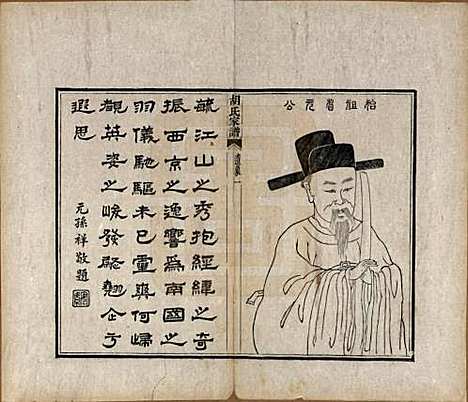 始祖魯瓦公
胡氏家譜
遺像
毓江山之秀抱經緯之奇
振西京之逸響爲南國之
羽儀馳驅未已靈爽何歸
覩英姿之峻發聊翹企乎
遐思
元孫祥敬題